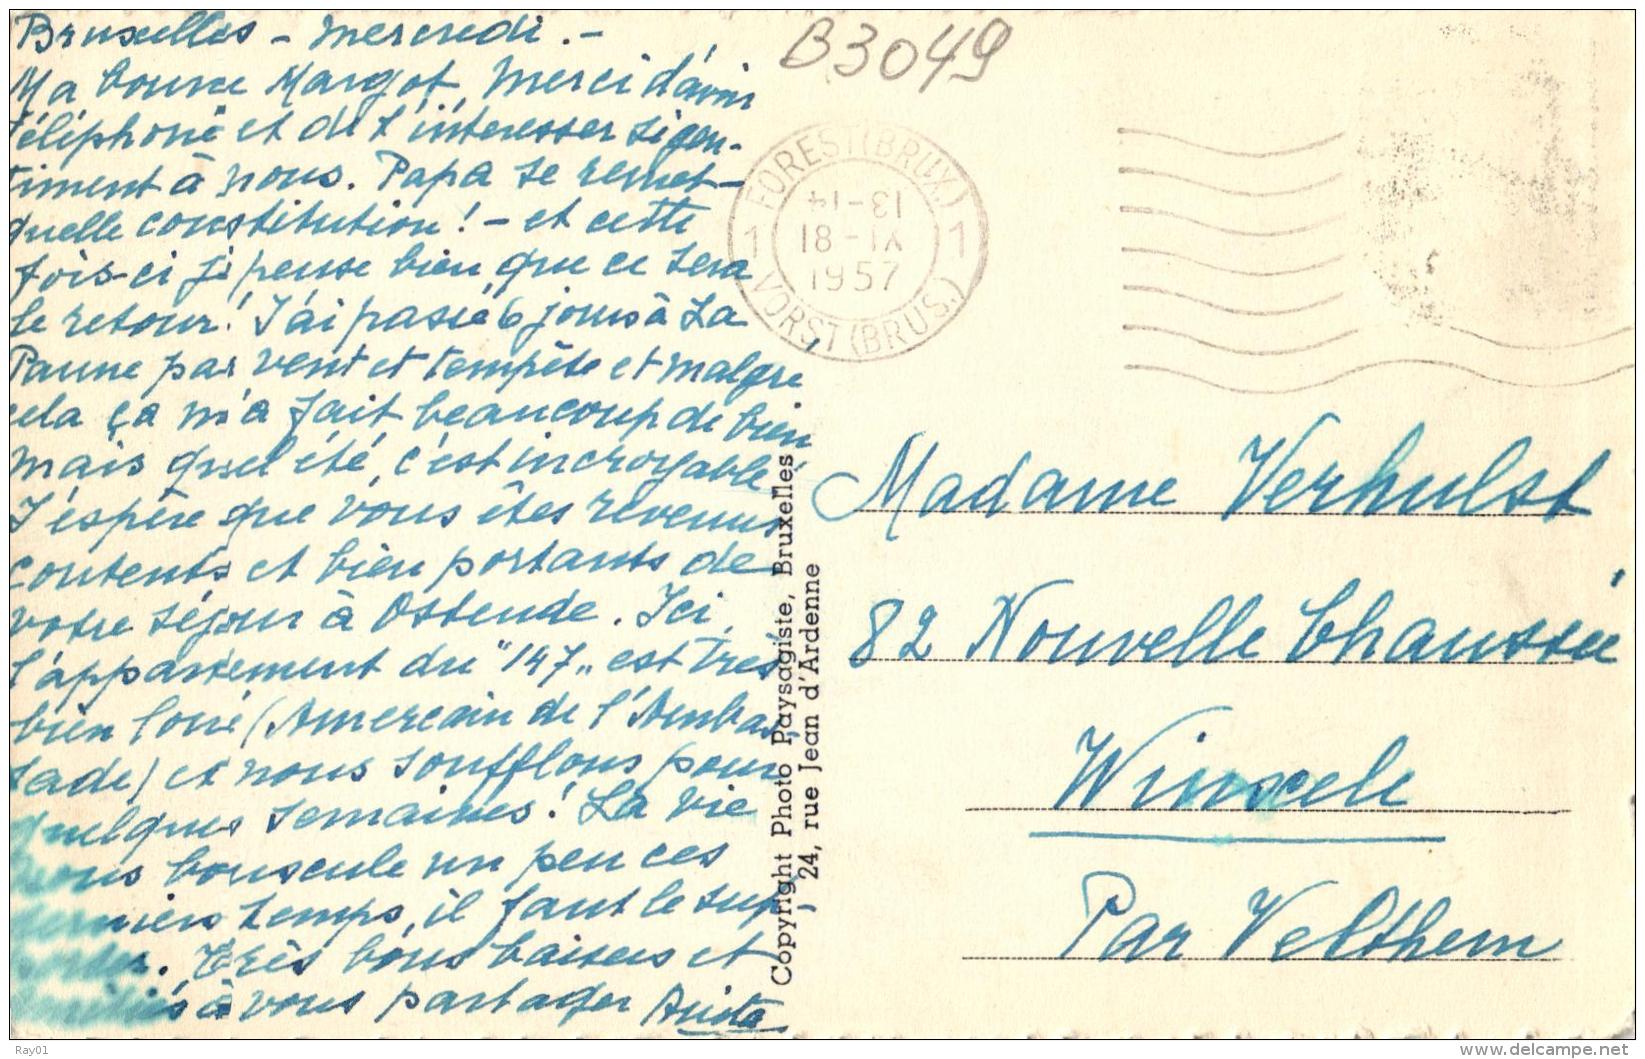 Bruxelles - mercredi. -
Ma bonne Margot, merci d'avoir
téléphoné et de t'intéresser si gen-
timent à nous. Papa se remet -
quelle constitution ! - et cette
fois-ci je pense bien que ce sera
le retour ! J'ai passé 6 jours à La
Panne par vent et tempête et malgré
cela ça m'a fait beaucoup de bien
mais quel été, c'est incroyable !
J'espère que vous êtes revenus
contents et bien portants de
votre séjour à Ostende. Ici,
l'appartement du "147" est très
bien loué (Americain de l'Ambas-
sade) et nous soufflons pour
quelques semaines ! La vie
nous bouscule un peu ces
derniers temps, il faut le sup-
porter. Très bons baisers et
amitiés à vous partager
B3049
FOREST (BRUX.)
1 1
13-14
18-IX
1957
VORST (BRUS.)
Copyright Photo Paysagiste, Bruxelles
24, rue Jean d'Ardenne
Madame Verhulst
82 Nouvelle Chaussée
Winxele
Par Velthem
Ray01
www.delcampe.net